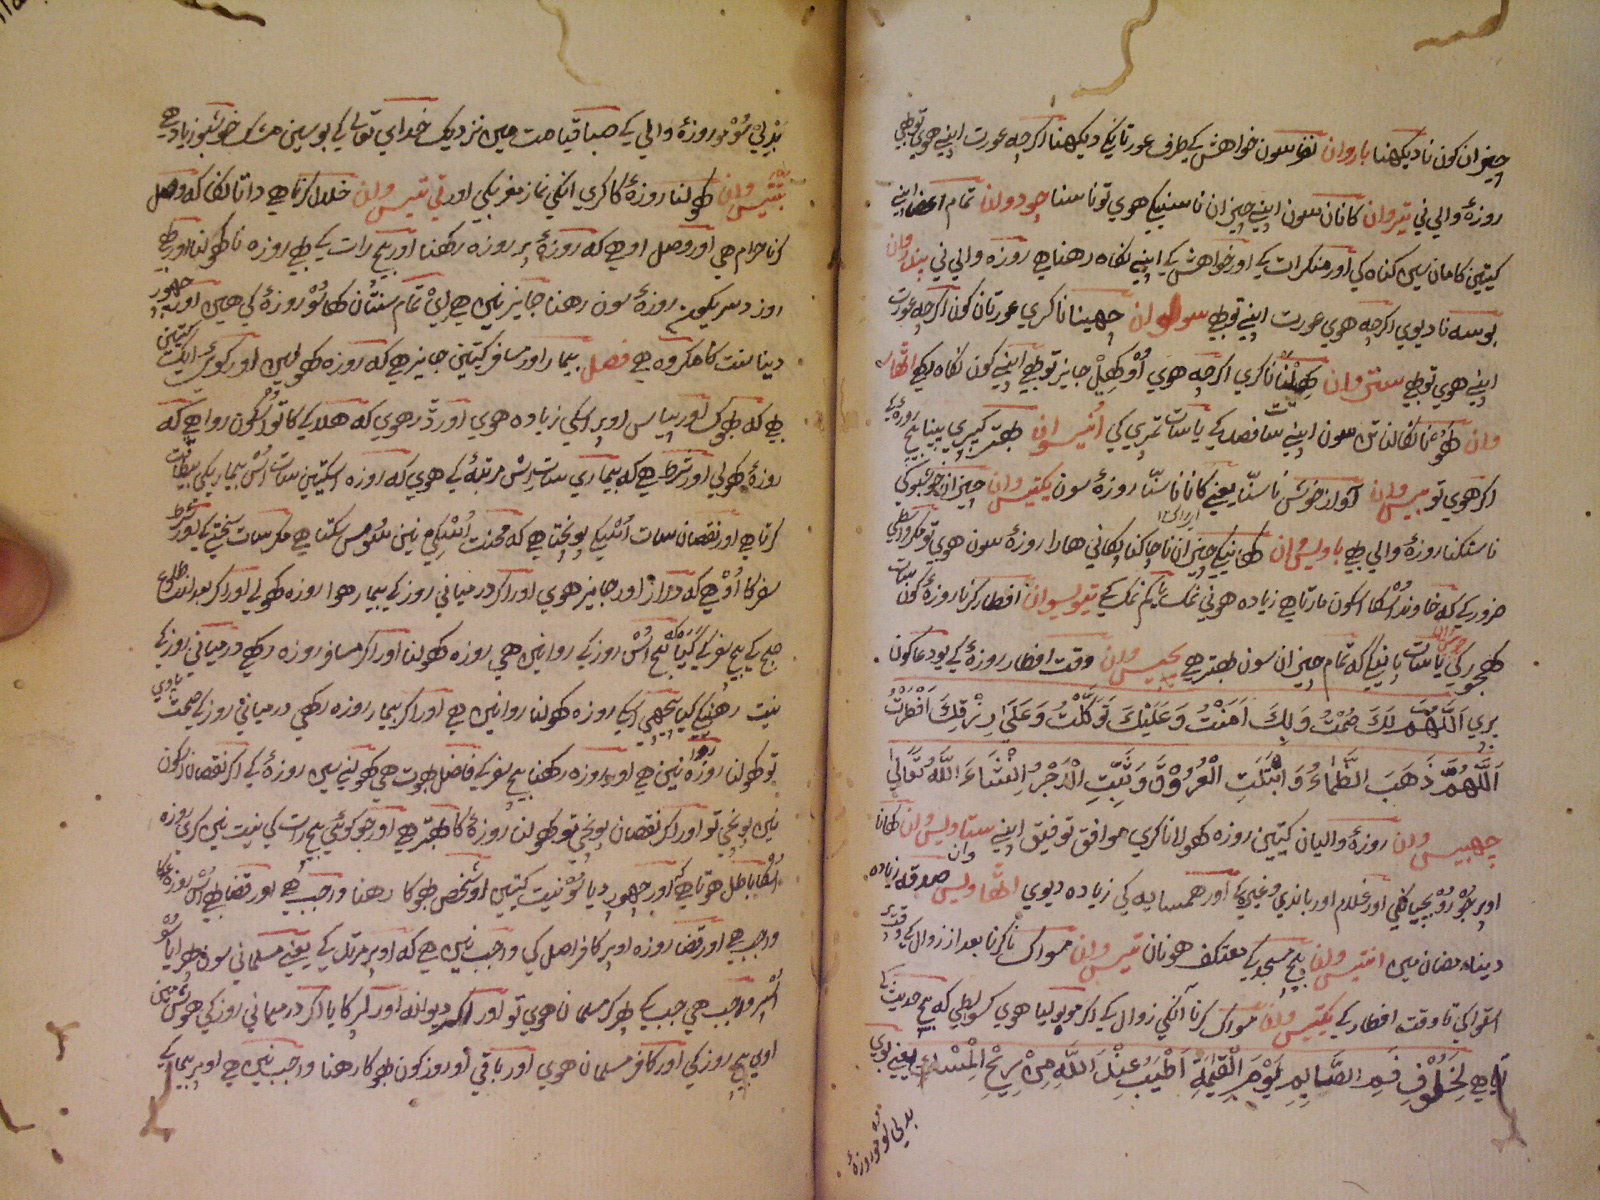 چیزان کون نا دیکھنا باروان نفسون خواهش کے طرف عورتانکے دیکھنا اکرچه عورت اپنے هوی تو بهی
روزۀ والی نی تیروان کانان سون اپنے چیزان نا سنیکے هوی تو نا سننا چودوان تمام اعضا اپنے
کیتین کامان سی کناه کی اور منکرات کے اور خواهش کے اپنے نکاه رهنا هے روزه والی نی پندروان
بوسه نا دیوی اکرچه هوی عورت اپنے تو بهے سولوان چهینا نا کری عورتان کون اکرچه عورت
اپنے هوی تو بهے ستروان کهیلنا نا کری اکرچه هوی او کهیل جایز تو بهے اپنے کون نکاه رکهے اٹهارا
وان لهو نا نکالنا تن سون اپنے سات فصد کے یا سات تمری کی انیسوان بهتر کپری پینا بیچ روزۀ کے
اکر هوی تو بیسوان آواز خوش نا سننا یعنے کانا نا سننا روزۀ سون یکتیسوان چیزان خوشبوکی
نا سنکنا روزۀ والی بهے باویسوان کهانیکے چیزان نا چاکنا پکانی هارا روزۀ سون هوی تو مکر واسطی
ضرور کے که خاوند اسکا اسکون مارتا هے زیاده هونی نمک یا کم نمک کے تیویسوان افطار کرنا روزۀ کون سات
کهجور کی یا سات پانیکے که تمام چیزان سون بهتر هے پچیسوان وقت افطار روزۀ کے یو دعا کون
پری اَللّٰهُمَّ لَكَ صُمْتُ وَ بِكَ اٰمَنْتُ وَ عَلَیْكَ تَوَكَّلْتُ وَ عَلیٰ رِزْقِكَ اَفْطَرْتُ
اَللّٰهُمَّ ذَهَبَ الظَّمَاءُ وَ ابْتَلَّتِ الْعُرُوْقُ وَ ثَبَتِ الْاَجْرُ اِنْشَاءَ اللّٰهُ تَعَالیٰ
چهبیسوان روزۀ والیان کیتین روزه کهولانا کری موافق توفیق اپنے ستاویسوان کهانا
اوپر جورو بچیانکی اور غلام اور باندی وغیرکے اور همسایه کی زیاده دیوی اٹهاویسوان صدقه زیاده
دینا رمضان میں انتیسوان بیچ مسجد کے معتکف هونان تیسوان مسواک نا کرنا بعد از زوال کے
تا وقت افطار کے یکتیسوان مسواک کرنا آنکی زوال کے اکر موبولیا هوی کسو بطی که بیچ حدیث کے
آیا هے لِخُلُوْفِ فَمِ الصَّایِمِ یَوْمَ الْقِیٰمَةِ اَطْیَبُ عِنْدَ اللّٰهِ مِنْ رِیْحِ الْمِسْكِ یعنے بوی
بدلی مو جو روزۀ
بدلی مو روزۀ والی کے صبا قیامت میں نزدیک خدای تعالے کے بو سین مشک خوشبو زیاد هے
بتیسوان کهولنا روزۀ کا کری انکی نماز مغربکی اور تی تیسوان خلال کرنا هے داتا لکا که وصل
کرنا حرام هی اور وصل او هے که روزۀ پر روزه رکهنا اور بیچ رات کے بهے روزه نا کهولنا اور بهے
روز دسریکون روزۀ سون رهنا جایز نیں هے ای تمام سنتان کها تو روزۀ کی هیں اور چهور
دینا سنت کا مکروه هے فصل بیمار اور مسافر کیتین جایز هے که روزه کهولیں اور کوئی ایک کیتین
بهے که بهوک اور پیاس اوپر اسکی زیاده هوی اور ڈر هوی که هلاکے کا تو اسکون روا هے که
روزۀ کهولی اور شرط هے که بیماری سات اس مرتبۀ کے هوی که روزه اسکیتین سات اس بیماریکی بیطاقت
کرتا هے اور نقصان سات اسکے پونچتا هے که محنت اسکی نیں سوس سکتا هے مکر سات سختی کے اور شرط
سفر کا او هے که دراز اور جایز هوی اور اکر درمیانی روز کے بیمار هوا روزه کهولی اور اکر بعد از طلوع
صبح کے بیچ سفر کے کیا هے بیچ اس روز کے روا نیں هی روزه کهولنا اور اکر مسافر روزه رکهے درمیانی روز کے
نیت رهنیکے کیا پیچهی اسکے روزه کهولنا روا نیں هے اور اکر بیمار روزه رکهی درمیانی روز کے صحت پاوی
تو کهولنا روزه روا نیں هے اور روزه رکهنا بیچ سفر کے فاضل بهوت هے کهولنے سیں روزۀ کے اکر نقصان اسکون
نیں پونچی تو اور اکر نقصان پونچی تو کهولنا روزۀ کا بهتر هے اور جو کوئی بیچ رات کی نیت نیں کری روزه
اسکا باطل هوتا هے اور چهور دیا تو نیت کیتین او شخص بهوکا رهنا واجب هے اور قضا بهے اس روزۀ کا
واجب هے اور قضا روزه اوپر کافر اصل کی واجب نیں هے که اوپر مرتد کے یعنے مسلمانی سون پهرایا سو
اسپر واجب هے جب کے پهر کر مسلمان هوی تو اور اکر دیوانه اور لرکا یا اکر درمیانی روز کی هوش میں
اوی بیچ روز کی اور کافر مسلمان هوی اور باقی او روز کون بهوکا رهنا واجب نیں هے اوپر بیمار کے